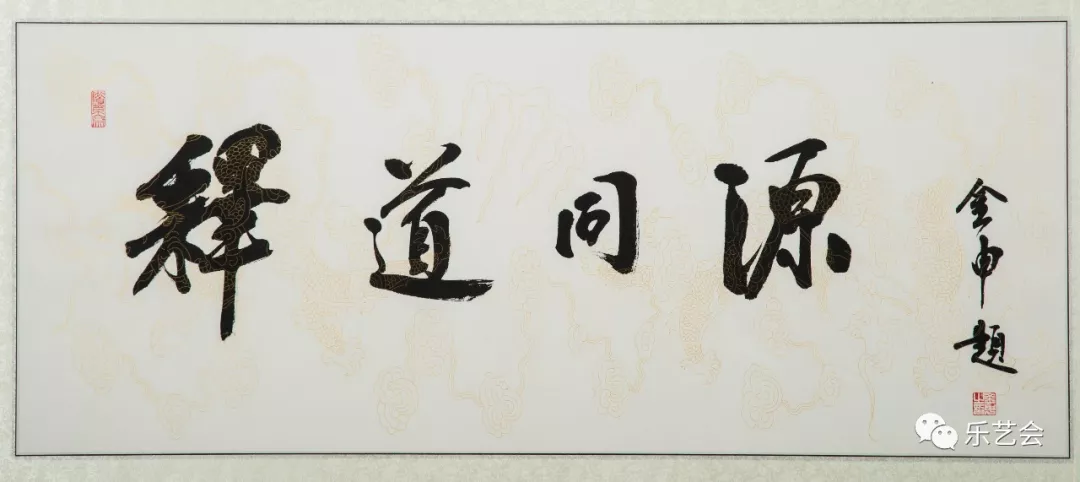 释道同源
金申题
乐艺会